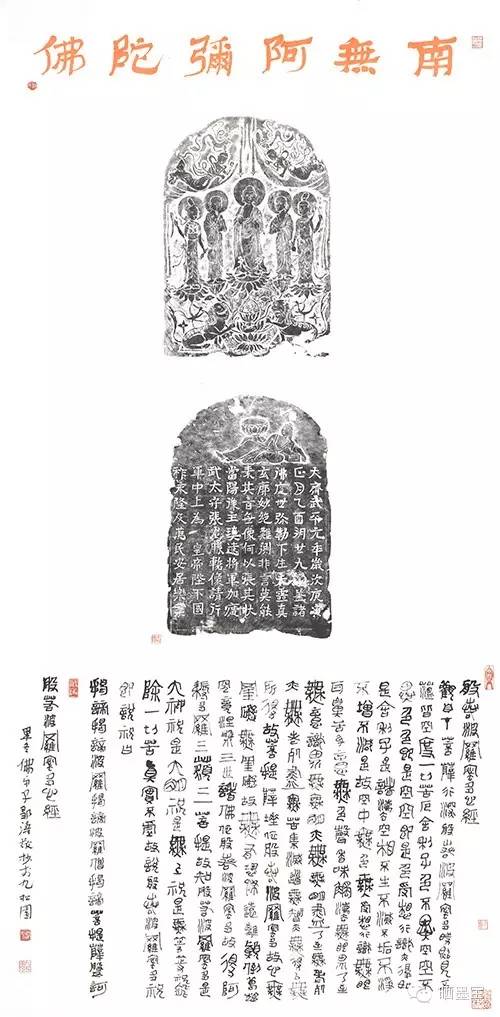 南無阿彌陀佛
大齊武平元年歲次庚寅
正月乙酉朔廿九諸
佛度世弥勒下生真
玄廓妙絶難測非言莫能
表其旨无像何以張其狀
當陽王遠將軍加
武太守張像請行
軍中上為皇帝陛下國
祚永隆及萬民安居樂業
般若波羅蜜多心經
觀自在菩薩行深般若波羅蜜多時照見五
蘊皆空度一切苦厄舍利子色不異空空不
異色色即是空空即是色受想行識亦復如
是舍利子是諸法空相不生不滅不垢不淨
不增不減是故空中無色無受想行識無眼
耳鼻舌身意無色聲香味觸法無眼界乃至
無意識界無無明亦無無明盡乃至無老死
亦無老死盡無苦集滅道無智亦無得以無
所得故菩提薩埵依般若波羅蜜多故心無
罣礙無罣礙故無有恐怖遠離顛倒夢想
究竟涅槃三世諸佛依般若波羅蜜多故得阿
耨多羅三藐三菩提故知般若波羅蜜多是
大神咒是大明咒是無上咒是無等等咒能
除一切苦真實不虛故說般若波羅蜜多咒
即說咒曰
揭諦揭諦波羅揭諦波羅僧揭諦菩提薩婆訶
般若波羅蜜多心經
佛弟子鄒濤敬抄於九松園